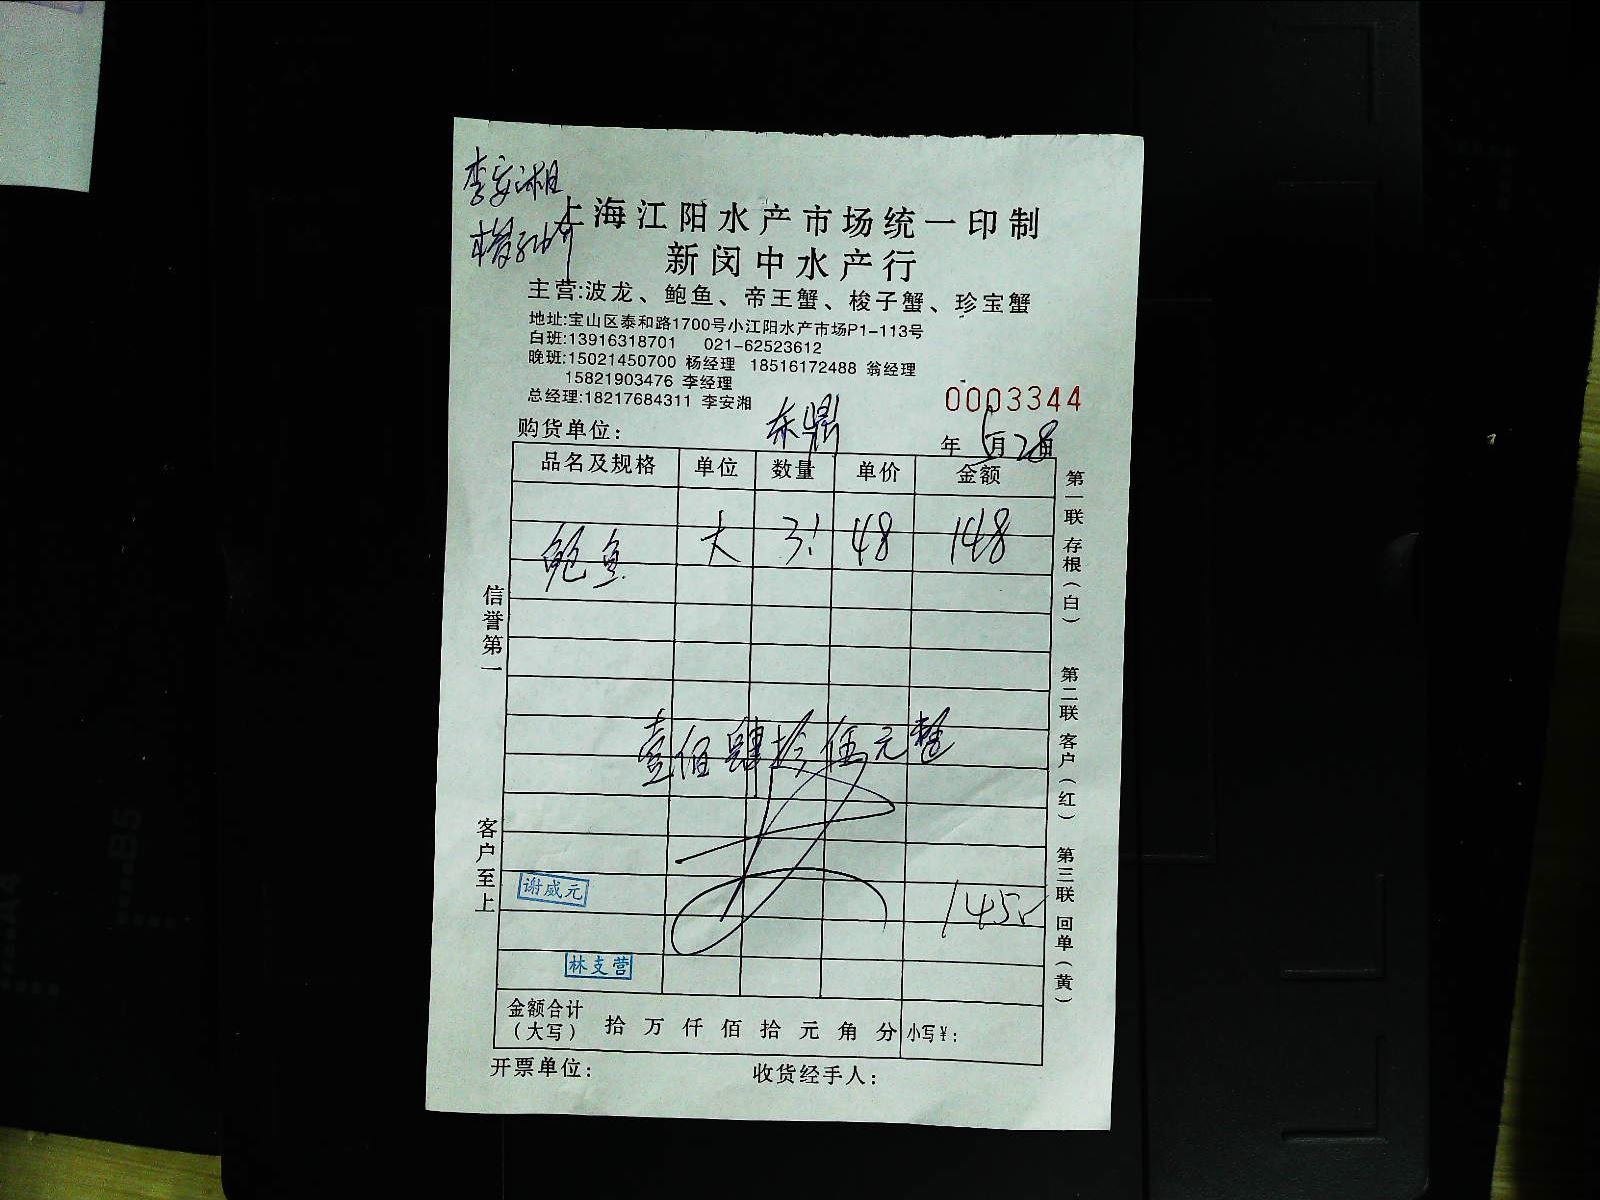 李安湘
上海江阳水产市场统一印制
新闵中水产行
主营:波龙、鲍鱼、帝王蟹、梭子蟹、珍宝蟹
地址:宝山区泰和路1700号小江阳水产市场P1-113号
白班:13916318701 021-62523612
晚班:15021450700 杨经理 18516172488 翁经理
15821903476 李经理
总经理:18217684311 李安湘
0003344
购货单位: 东鼎
年 5月28日
品名及规格 单位 数量 单价 金额
鲍鱼 大 3.1 48 148
壹佰肆拾伍元整
145
谢威元
林支营
金额合计(大写) 拾 万 仟 佰 拾 元 角 分 小写¥:
开票单位: 收货经手人:
信誉第一
客户至上
第一联 存根(白)
第二联 客户(红)
第三联 回单(黄)
B5
A4